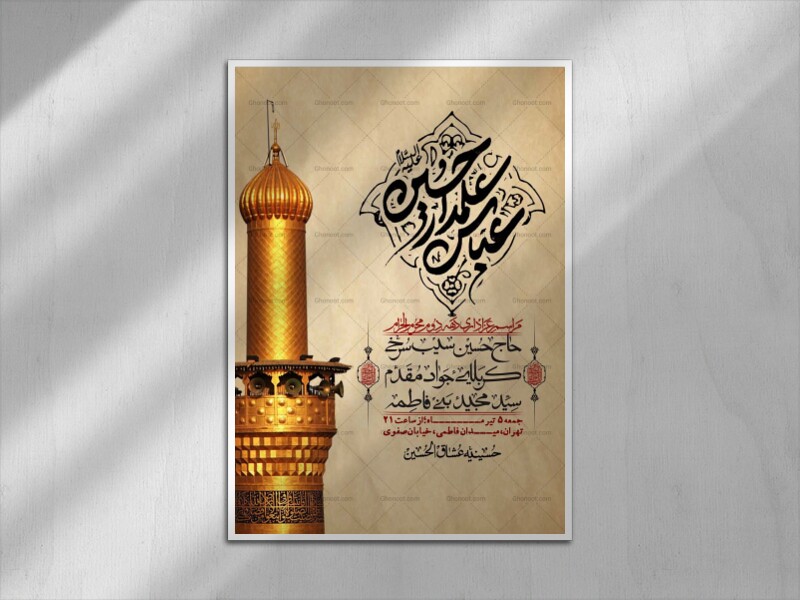 عباس علمدار حسین
علیه السلام
مراسم عزاداری دهه دوم محرم الحرام
حاج حسین سیب سرخی
کربلایی جواد مقدم
سید مجید بنی فاطمه
جمعه ۵ تیر ماه از ساعت ۲۱
تهران، میدان فاطمی، خیابان صفوی
حسینیه عشاق الحسین
Ghonoot.com